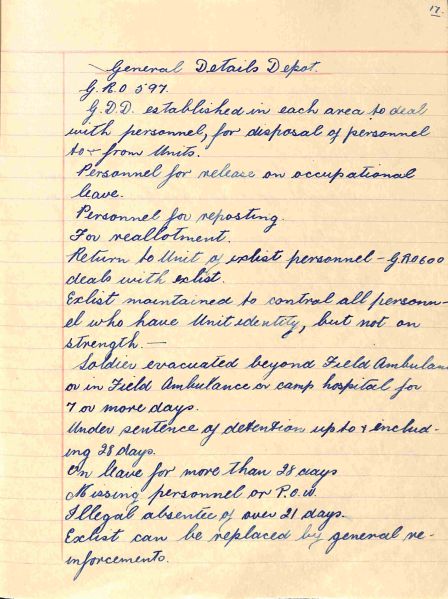 17.
General Details Depot.
G.R.O 597.
G.D.D. established in each area to deal
with personnel, for disposal of personnel
to & from Units.
Personnel for release on occupational
leave.
Personnel for reposting.
For reallotment.
Return to Unit of exlist personnel - G.R.O 600
deals with exlist.
Exlist maintained to control all personn-
el who have Unit identity, but not on
strength. -
Soldier evacuated beyond Field Ambulanc
or in Field Ambulance or camp hospital for
7 or more days.
Under sentence of detention up to & includ-
ing 28 days.
On leave for more than 28 days
Missing personnel or P.O.W.
Illegal absentee of over 21 days.
Exlist can be replaced by general re-
inforcements.